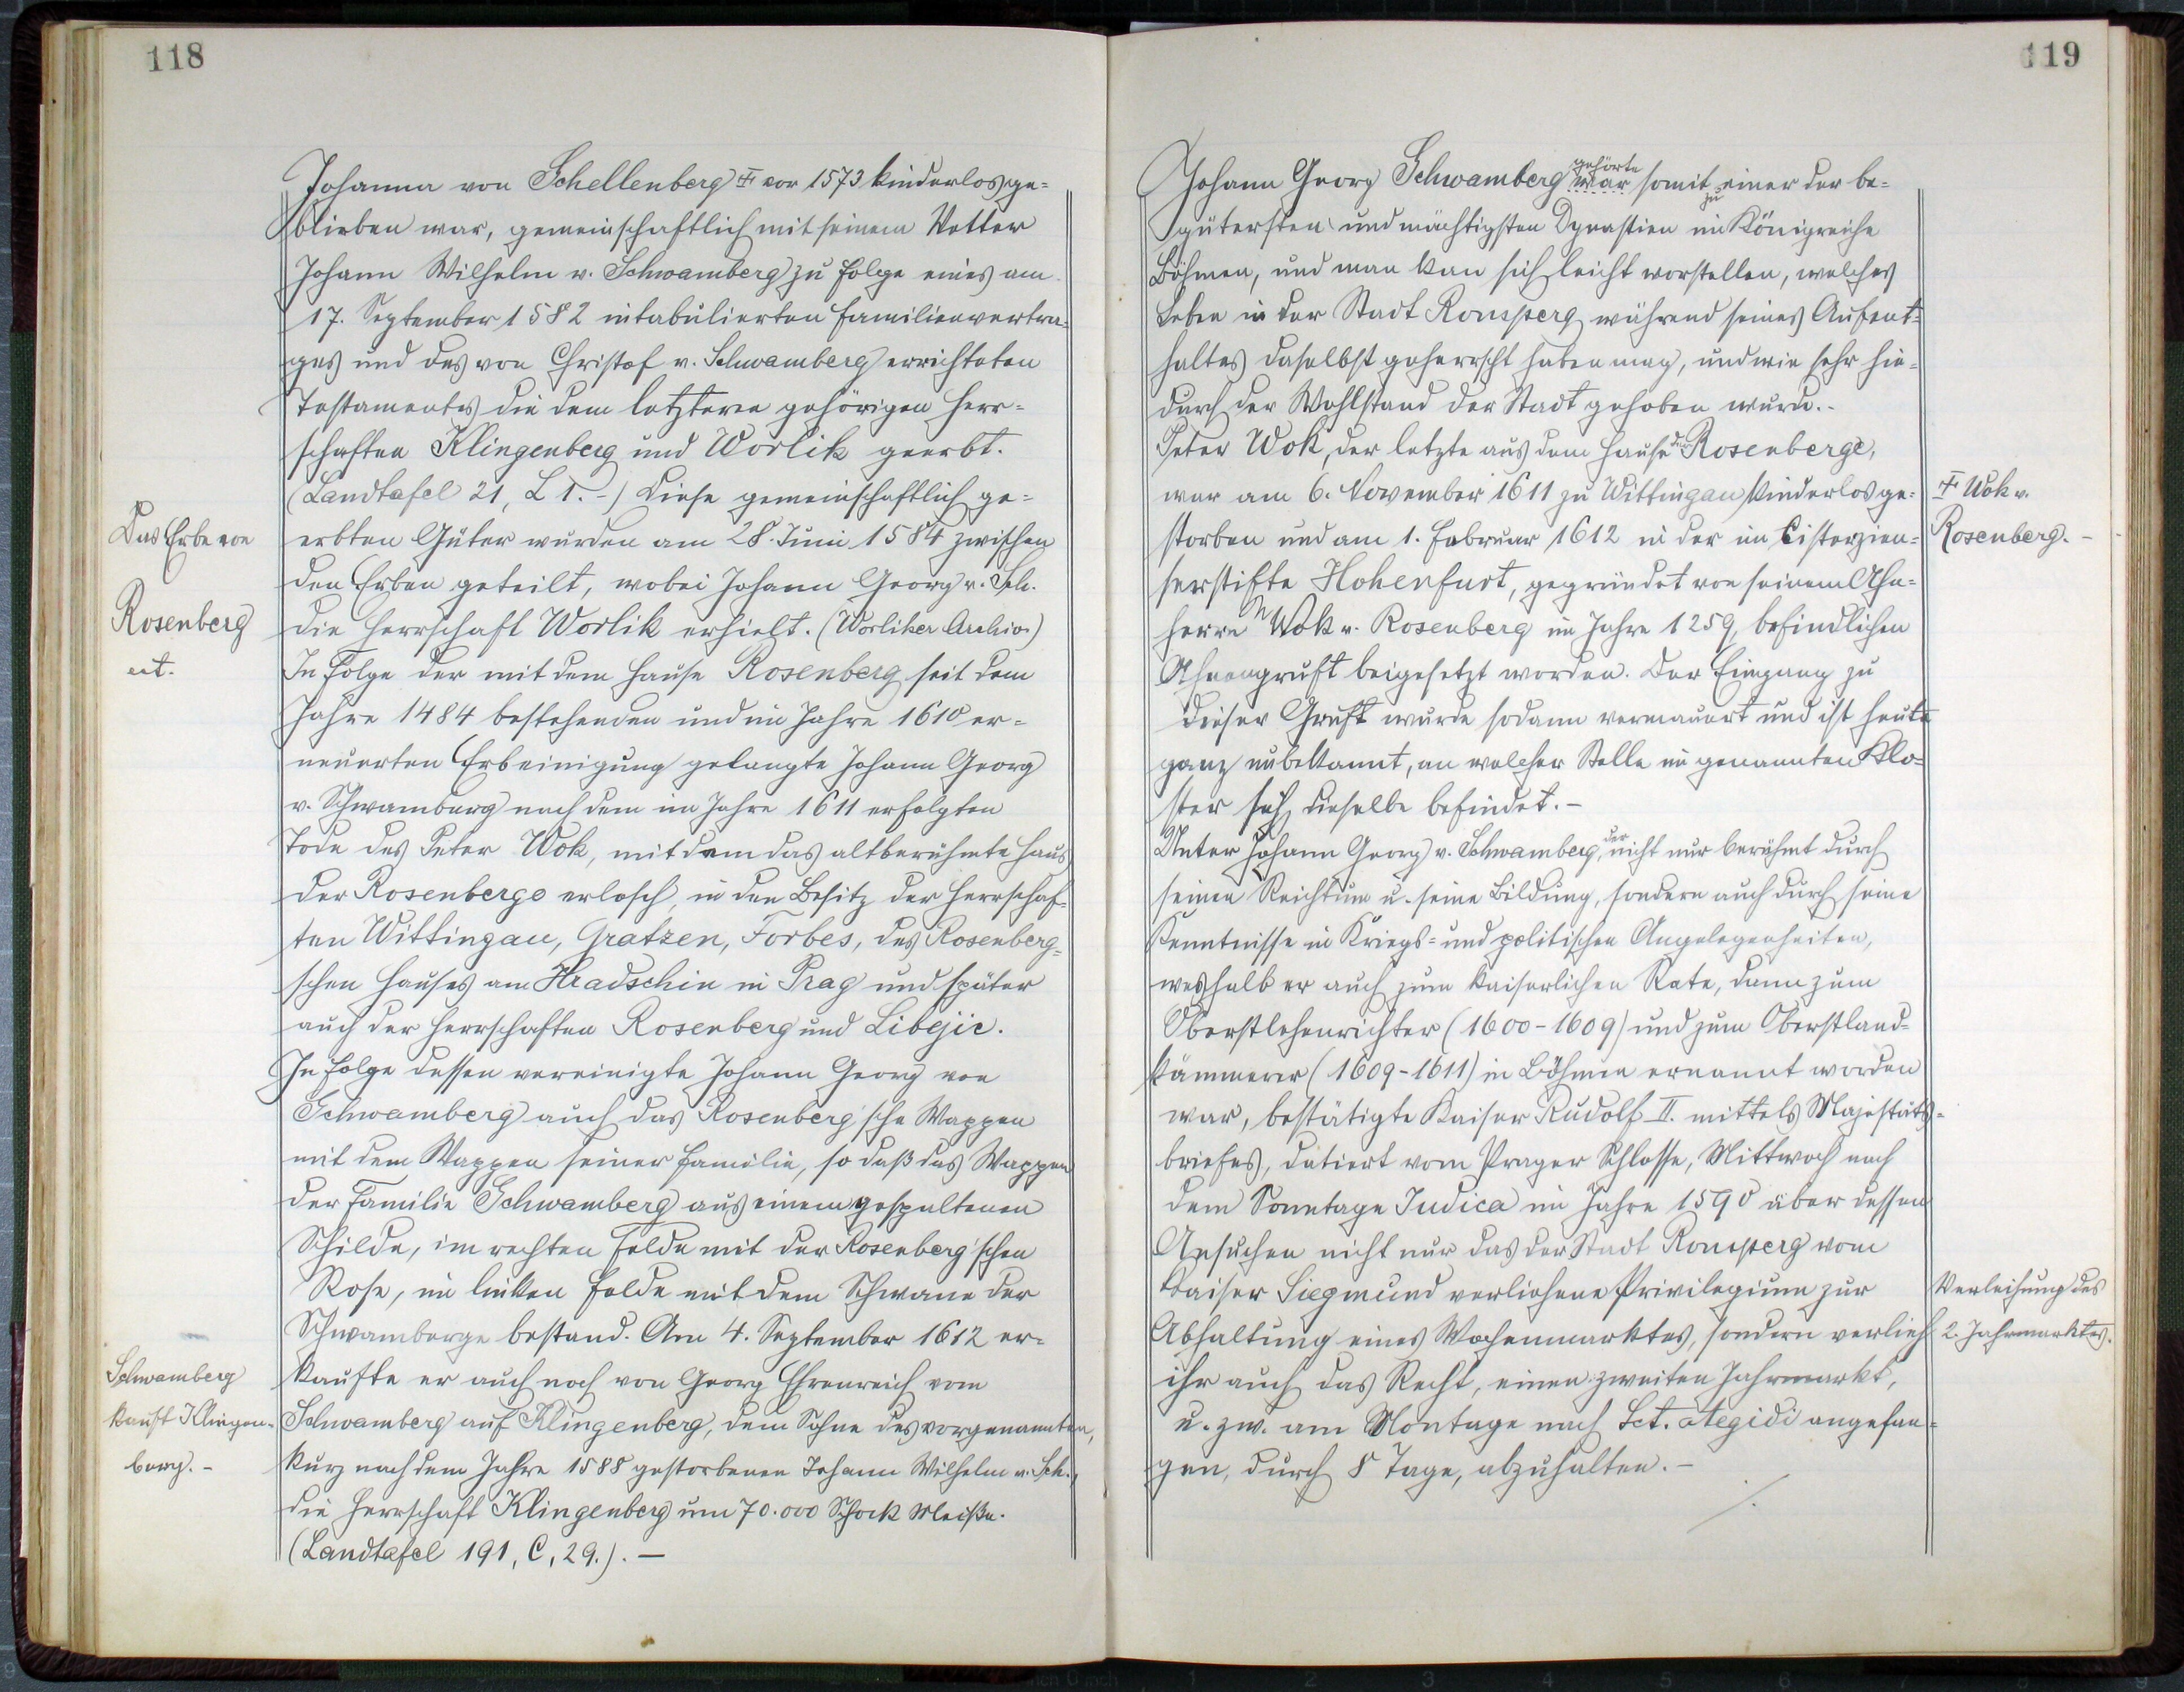 118
Johanna von Schellenberg ☩ vor 1573 kinderlos ge=
blieben war, gemeinschaftlich mit seinem Vetter
Johann Wilhelm v. Schwamberg zu folge eines am
17. September 1582 intabulierten Familienvertra=
ges und des von Christof v. Schwamberg errichteten
Testamentes die dem letzteren gehörigen Herr=
schaften Klingenberg und Worlik geerbt.
(Landtafel 21, L 1.-) Diese gemeinschaftlich ge=
Das Erbe von
erbten Güter wurden am 28. Juni 1584 zwischen
den Erben geteilt, wobei Johann Georg v. Sch.
Rosenberg
die Herrschaft Worlik erhielt. (Worliker Archiv.)
In Folge der mit dem Hause Rosenberg seit dem
Jahre 1484 bestehenden und im Jahre 1610 er=
neuerten Erbeinigung gelangte Johann Georg
v. Schwamberg nach dem im Jahre 1611 erfolgten
Tode des Peter Wok, mit dem das altberühmte Haus
der Rosenberge erlosch, in den Besitz der Herrschaf=
ten Wittingau, Gratzen, Forbes, des Rosenberg=
schen Hauses am Hradschin in Prag und später
auch der Herrschaften Rosenberg und Libějic.
In folge dessen vereinigte Johann Georg von
Schwamberg auch das Rosenberg'sche Wappen
mit dem Wappen seiner Familie, so daß das Wappen
der Familie Schwamberg aus einem gespaltenen
Schilde, im rechten Felde mit der Rosenberg'schen
Rose, im linken Felde mit dem Schwane der
Schwamberge bestand. Am 4. September 1612 er=
Schwamberg
kaufte er auch noch von Georg Ehrenreich von
kauft Klingen=
Schwamberg auf Klingenberg, dem Sohne des vorgenannten,
berg.-
kurz nach dem Jahre 1588 gestorbenen Johann Wilhelm v. Sch.,
die Herrschaft Klingenberg um 70.000 Schock Meißn.
(Landtafel 191, C, 29.).-
119
Johann Georg Schwamberg war gehörte somit zu einer der be=
gütersten und mächtigsten Dynastien im Königreiche
Böhmen, und man kan sich leicht vorstellen, welches
Leben in der Stadt Ronsperg während seines Aufent=
haltes daselbst geherrscht haben mag, und wie sehr hie=
durch der Wohlstand der Stadt gehoben wurde.-
Peter Wok, der letzte aus dem Hause der Rosenberge,
war am 6. November 1611 zu Wittingau kinderlos ge=
☩ Wok v.
storben und am 1. Februar 1612 in der im Cisterzien=
Rosenberg.-
serstifte Hohenfurt, gegründet von seinem Ahn=
herrn Wok v. Rosenberg im Jahre 1259, befindlichen
Ahnengruft beigesetzt worden. Der Eingang zu
dieser Gruft wurde sodann vermauert und ist heute
ganz unbekannt, an welcher Stelle im genannten Klo=
ster sich dieselbe befindet.-
Unter Johann Georg v. Schwamberg, der nicht nur berühmt durch
seinen Reichtum u. seine Bildung, sondern auch durch seine
Kenntnisse in Kriegs= und politischen Angelegenheiten,
weshalb er auch zum kaiserlichen Rate, dann zum
Oberstlehenrichter (1600-1609) und zum Oberstland=
kämmerer (1609-1611) in Böhmen ernannt worden
war, bestätigte Kaiser Rudolf II. mittels Majestäts=
briefes, datiert vom Prager Schlosse, Mittwoch nach
dem Sonntage Judica im Jahre 1590 über dessen
Ansuchen nicht nur das der Stadt Ronsperg vom
Kaiser Siegmund verliehene Privilegium zur
Verleihung des
Abhaltung eines Wochenmarktes, sondern verlieh
2. Jahrmarktes.
ihr auch das Recht, einen zweiten Jahrmarkt,
u. zw. am Montage nach Sct. Aegidi angefan=
gen, durch 8 Tage, abzuhalten.-
./.